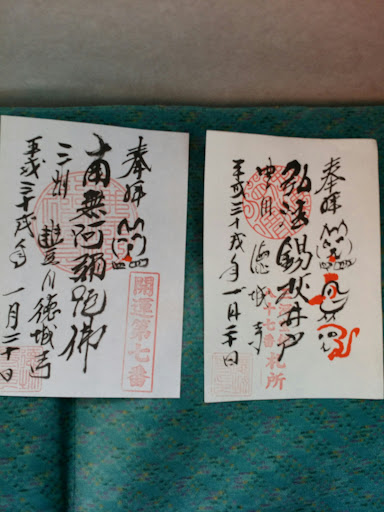 奉拝
南無阿弥陀佛
三州 豊川 徳城寺
平成三十戌年 一月二十日
開運第七番
奉拝
弘法錫杖井戸
徳城寺
平成三十戌年 一月二十日
八十七番
札所